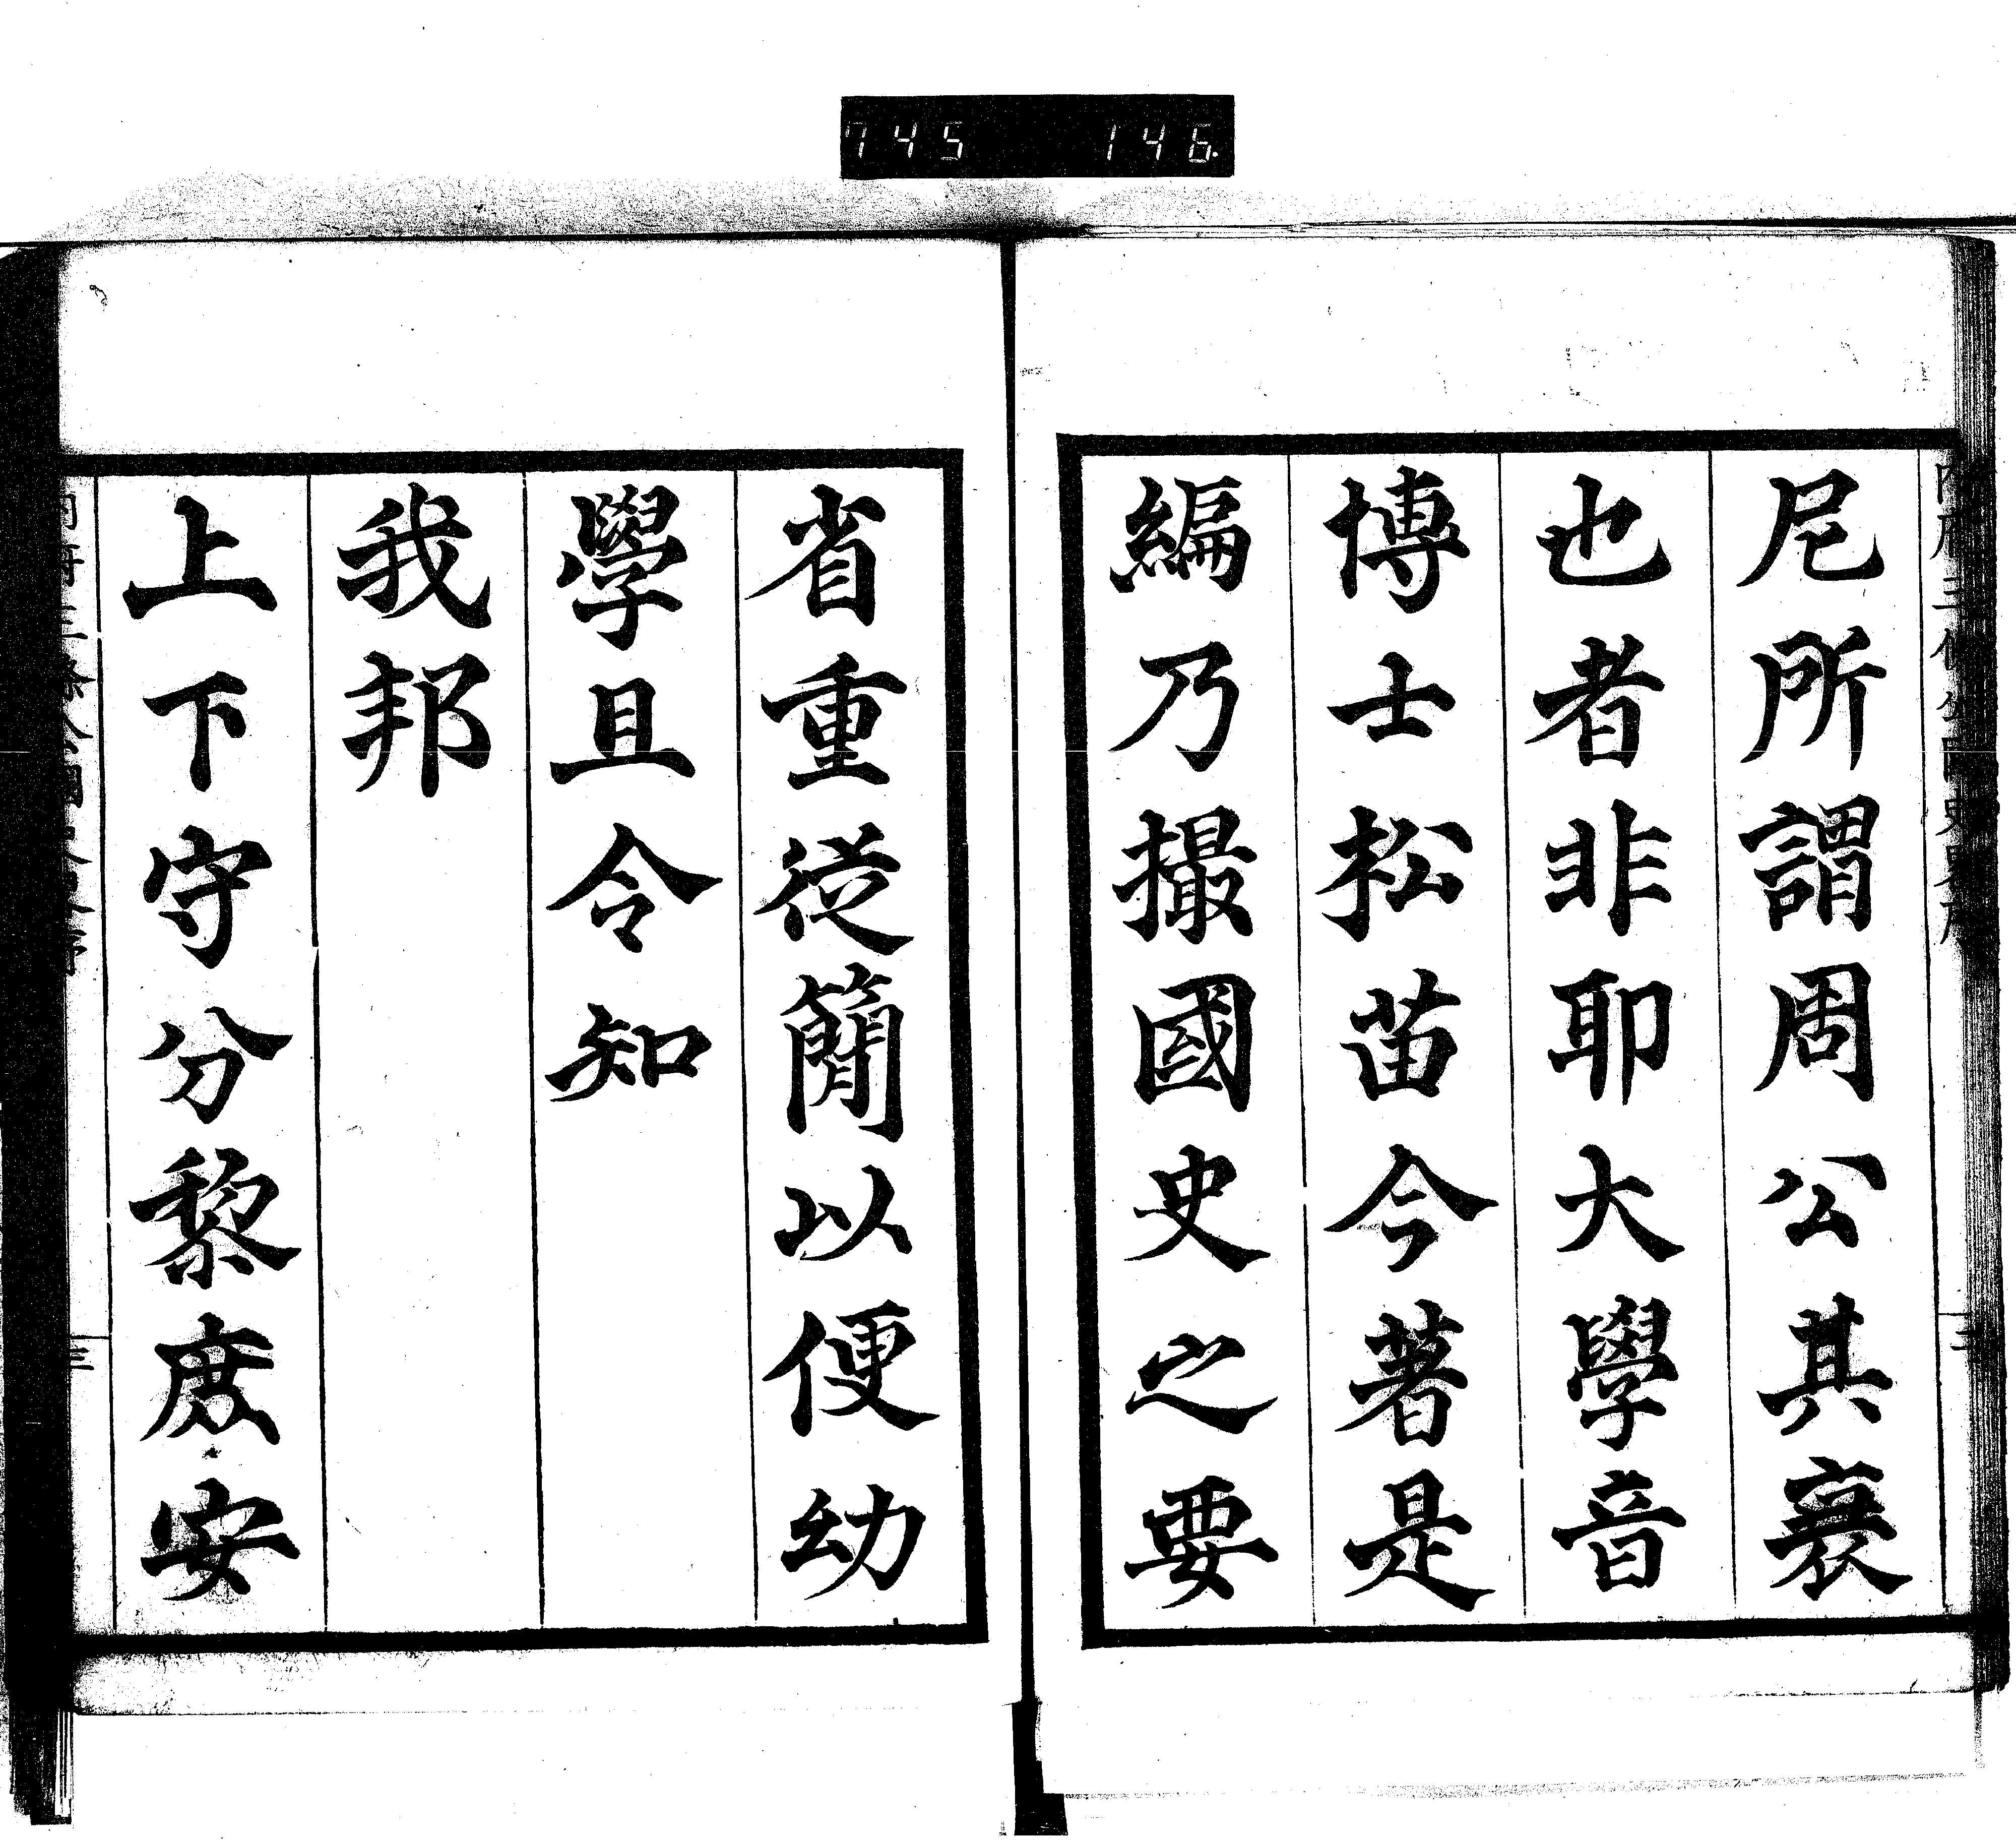 745 146.
尼所謂周公其衰
也者非耶大學音
博士松苗今著是
編乃撮國史之要
省重從簡以便幼
學且令知
我邦
上下守分黎庶安
三